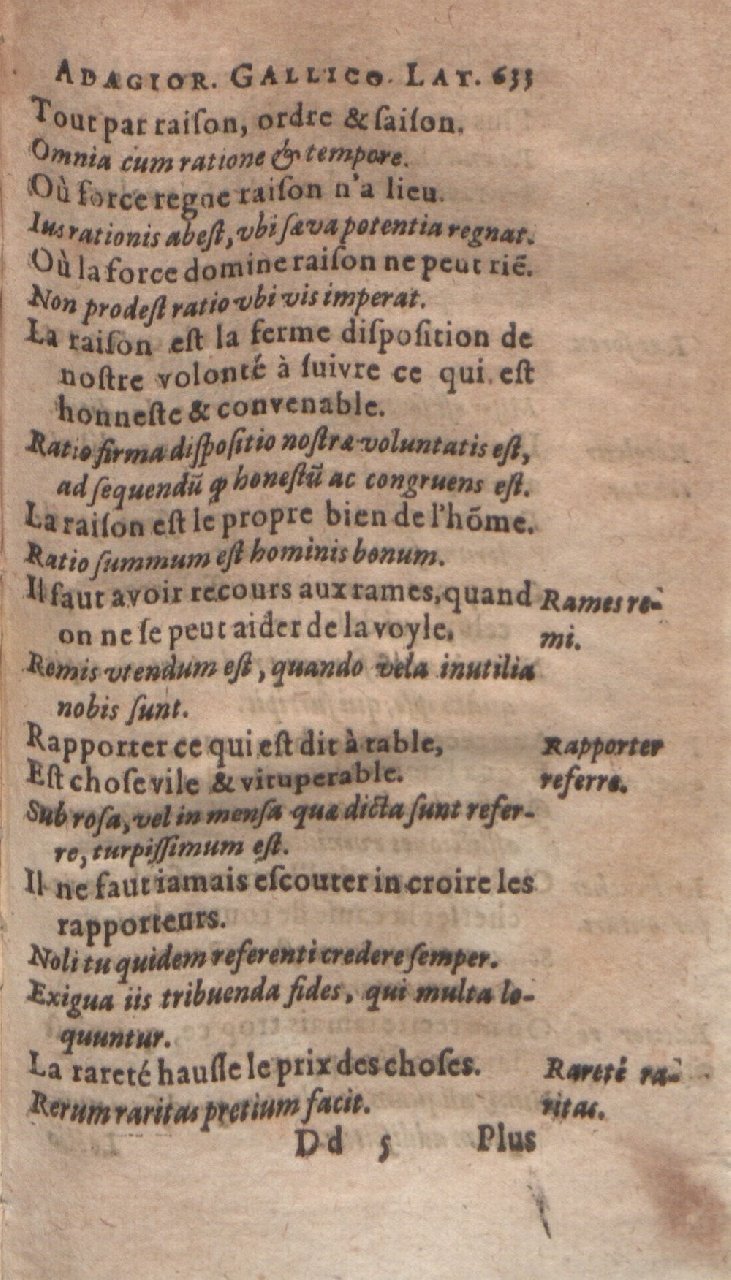 ADAGIOR. GALLICO. LAT. 633
Tout par raiſon, ordre & ſaiſon.
Omnia cum ratione & tempore.
Où force regne raiſon n'a lieu.
Ius rationis abeſt, vbi ſæva potentia regnat.
Où la force domine raiſon ne peut riẽ.
Non prodeſt ratio vbi vis imperat.
La raiſon eſt la ferme diſpoſition de
noſtre volonté à ſuivre ce qui eſt
honneſte & convenable.
Ratio firma diſpoſitio noſtræ voluntatis eſt,
ad ſequendũ ꝙ honeſtũ ac congruens eſt.
La raiſon eſt le propre bien de l'hõme.
Ratio ſummum eſt hominis bonum.
Il faut avoir recours aux rames, quand
on ne ſe peut aider de la voyle.
Rames re-
mi.
Remis vtendum eſt, quando vela inutilia
nobis ſunt.
Rapporter ce qui eſt dit à table,
Eſt choſe vile & vituperable.
Rapporter
referre.
Sub roſa, vel in menſa quæ dicta ſunt refer-
re, turpiſſimum eſt.
Il ne faut iamais eſcouter in croire les
rapporteurs.
Noli tu quidem referenti credere ſemper.
Exigua iis tribuenda fides, qui multa lo-
quuntur.
La rareté hauſſe le prix des choſes.
Rareté ra-
ritas.
Rerum raritas pretium facit.
Dd 5 Plus